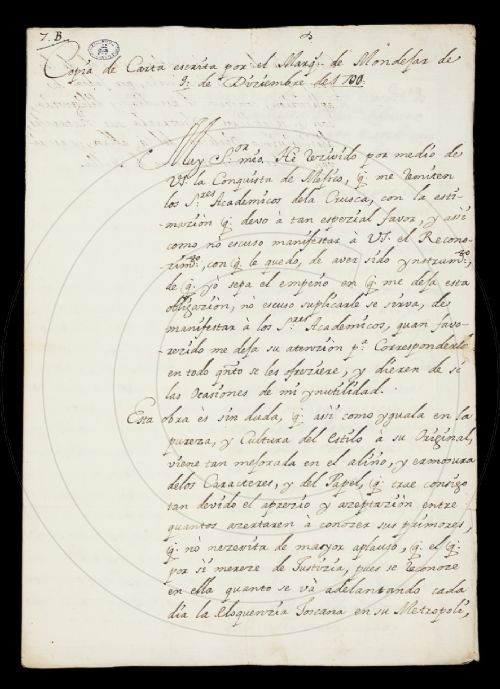 7. B.
2
Copia de Carta escrita por el Marq.s de Mondejar de
9. de Diziembre de 1700.
Muy S.or mio. He rezivido por medio de
VS. la Conquista de Mejico, q. me remiten
los S.res Academicos dela Crusca, con la esti-
-mazion q. devo à tan espezial favor, y asi
como no escuso manifestar à VS. el Recono-
zim.to, con q. le quedo, de aver sido ynstrum.to,
de q. yo sepa el empeño en q. me deja esta
obligazion, no escuso suplicarle se sirva, de
manifestar à los S.res Academicos, quan favo-
-rezido me deja su atenzion p.a Corresponderle
en todo q.nto se les ofreziere, y dieren de sí
las Ocasiones de mi ynutilidad.
Esta obra ès sin duda, q. asi como yguala en la
pureza, y Cultura del Estilo à su Original,
viene tan mejorada en el aliño, y ermosura
delos Caracteres, y del Papel, q. trae consigo
tan devido el aprezio y azeptazion entre
quantos azertaren à conozer sus primores,
q. nò nezesita de mayor aplauso, q. el q.
por si mereze de Justizia, pues se reconoze
en ella quanto se và adelantando cada
dia la Eloquenzia Toscana en su Metropoli,